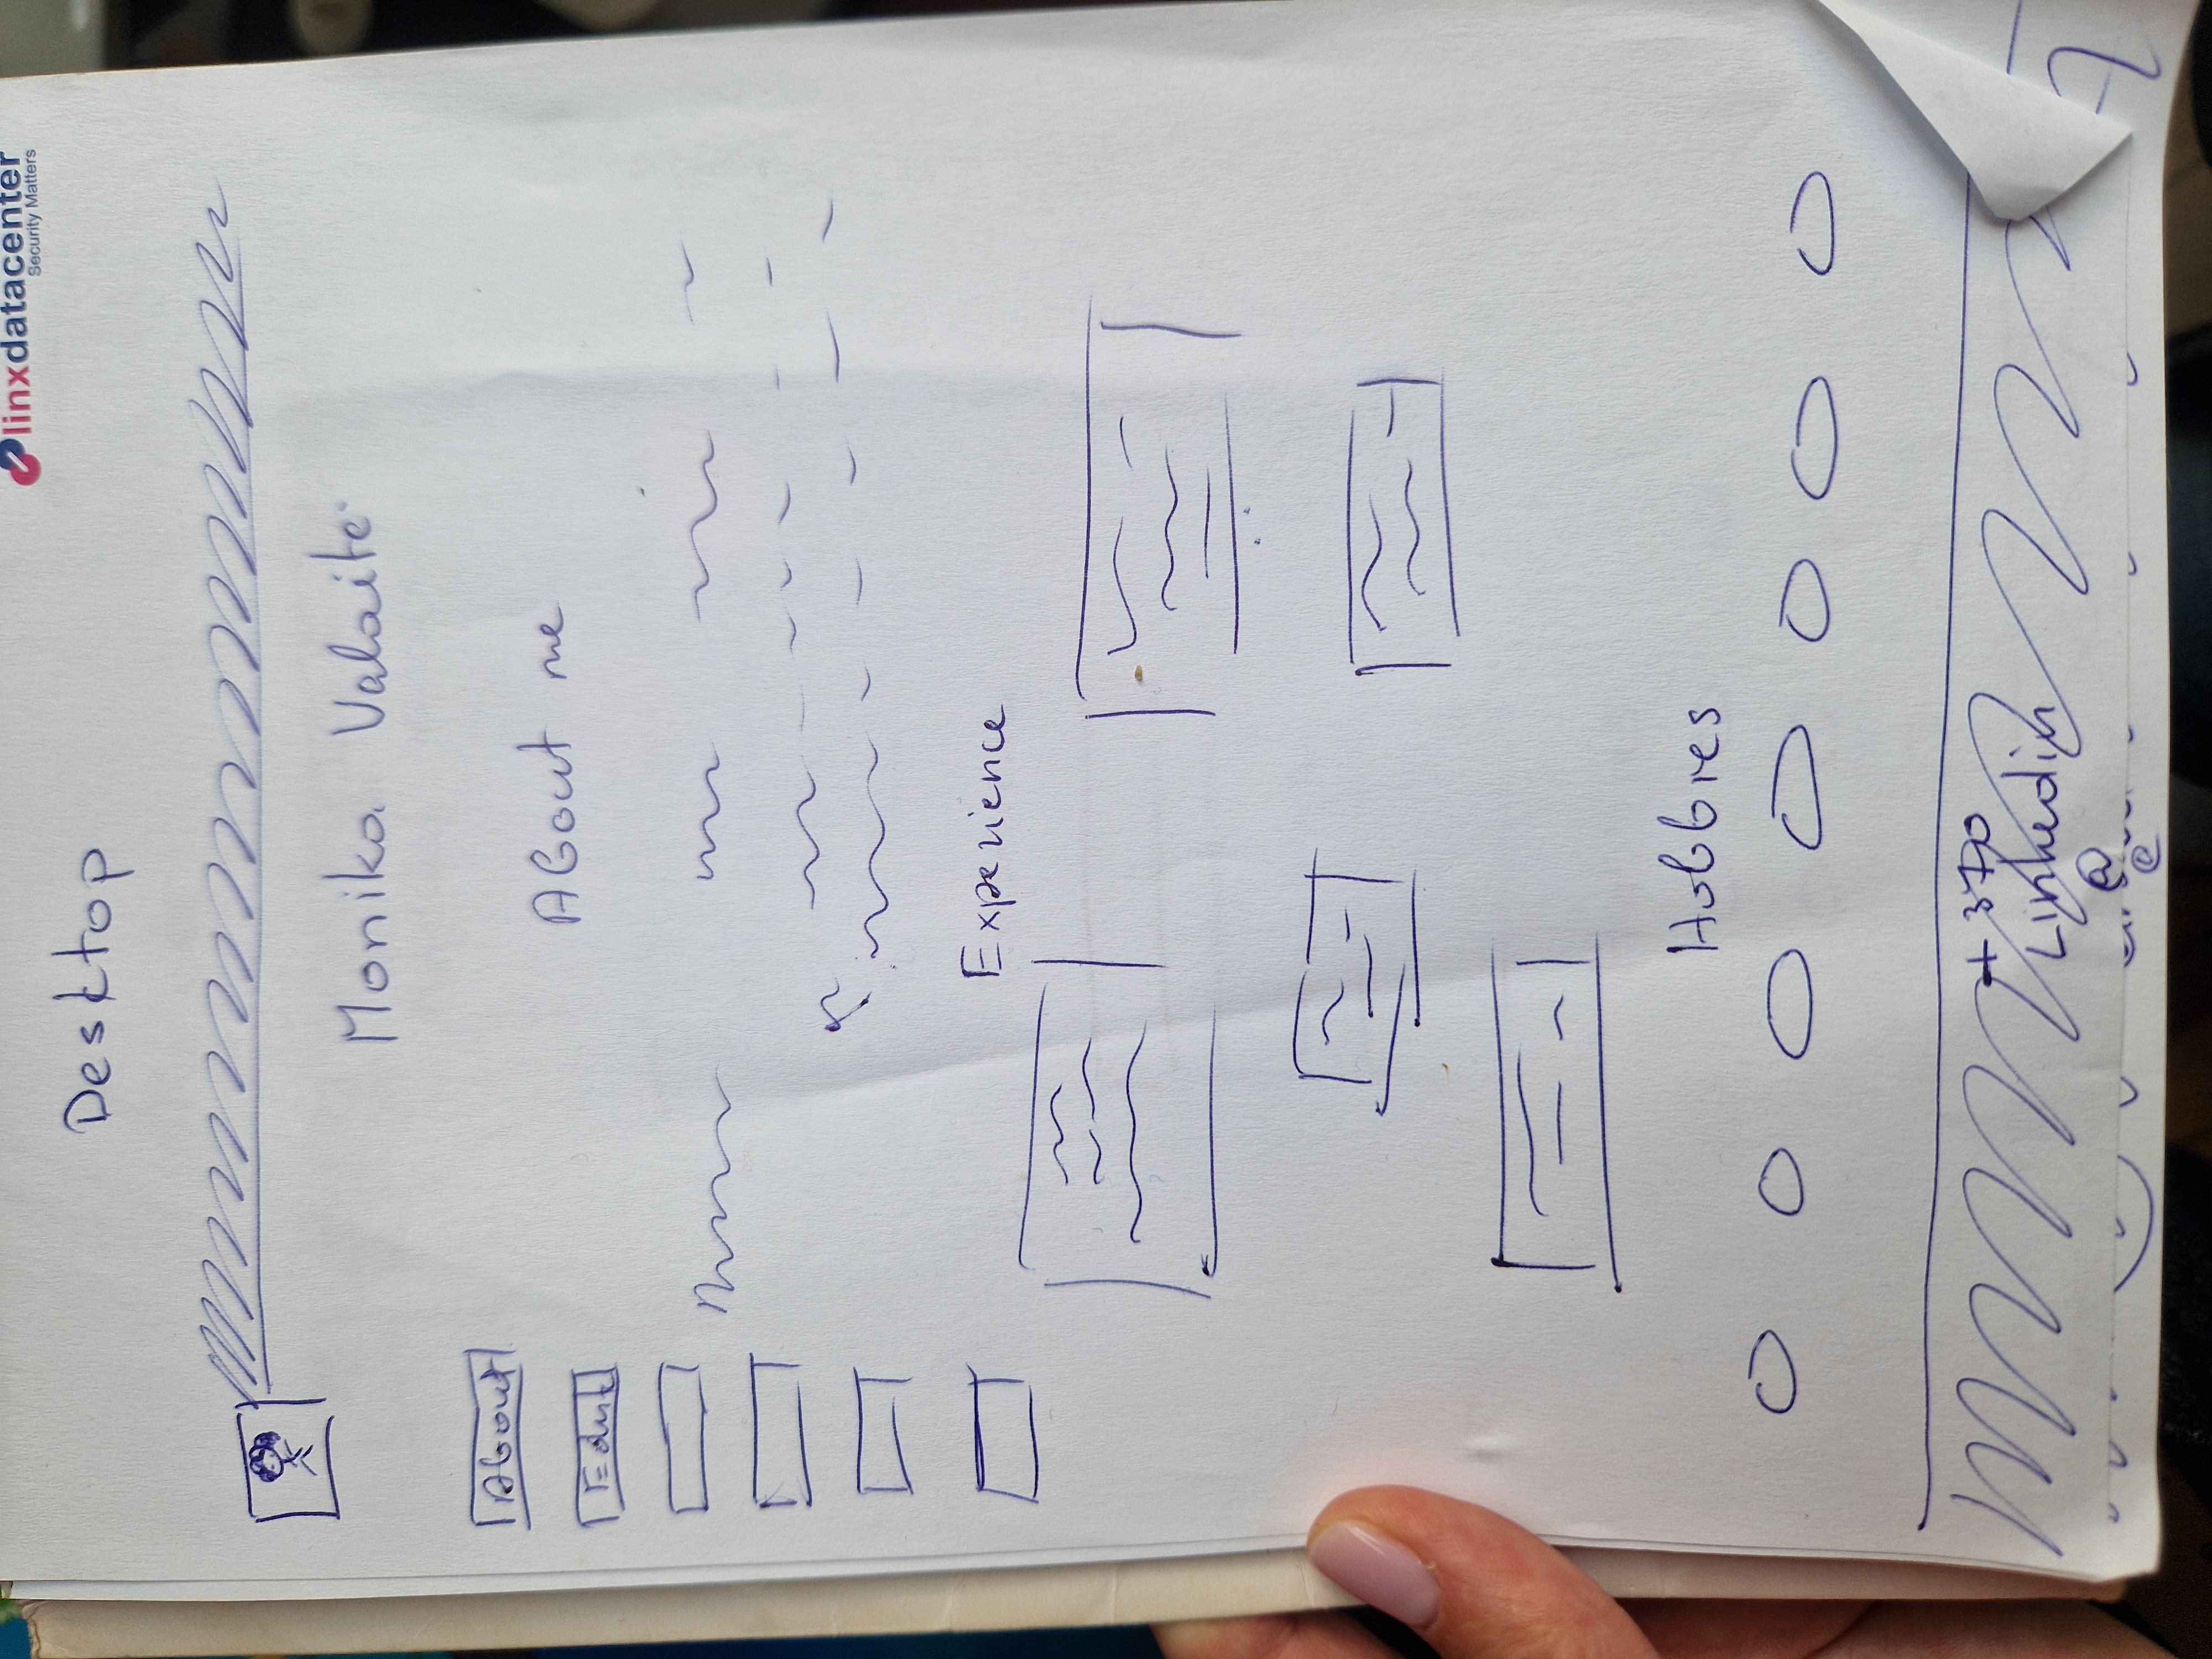 linxdatacenter
Security Matters
Desktop
Monika Valaitė
About
About me
Experience
Hobbies
+370
Linkedin
@
@